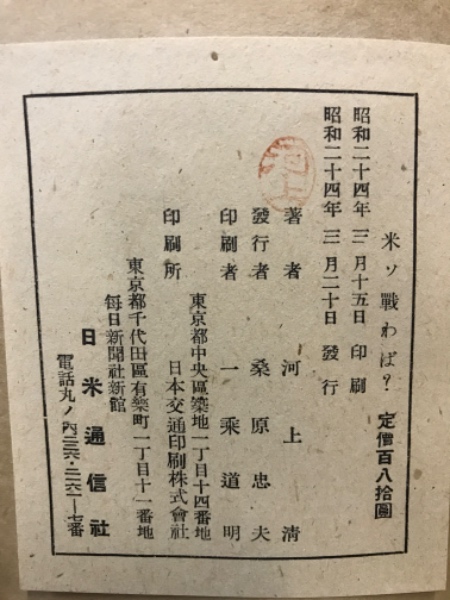 米ソ戰わば？ 定價百八拾圓
昭和二十四年 三月十五日 印刷
昭和二十四年 三月二十日 發行
著者 河上清
發行者 桑原忠夫
印刷者 一乘道明
東京都中央區築地一丁目十四番地
印刷所 日本交通印刷株式會社
東京都千代田區有樂町一丁目十一番地
每日新聞社新館
日米通信社
電話丸ノ內
河上